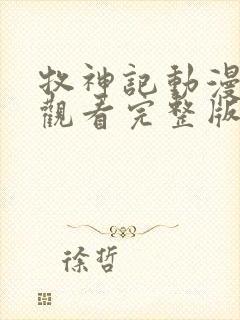 牧神記動漫
觀看完整版
徐哲